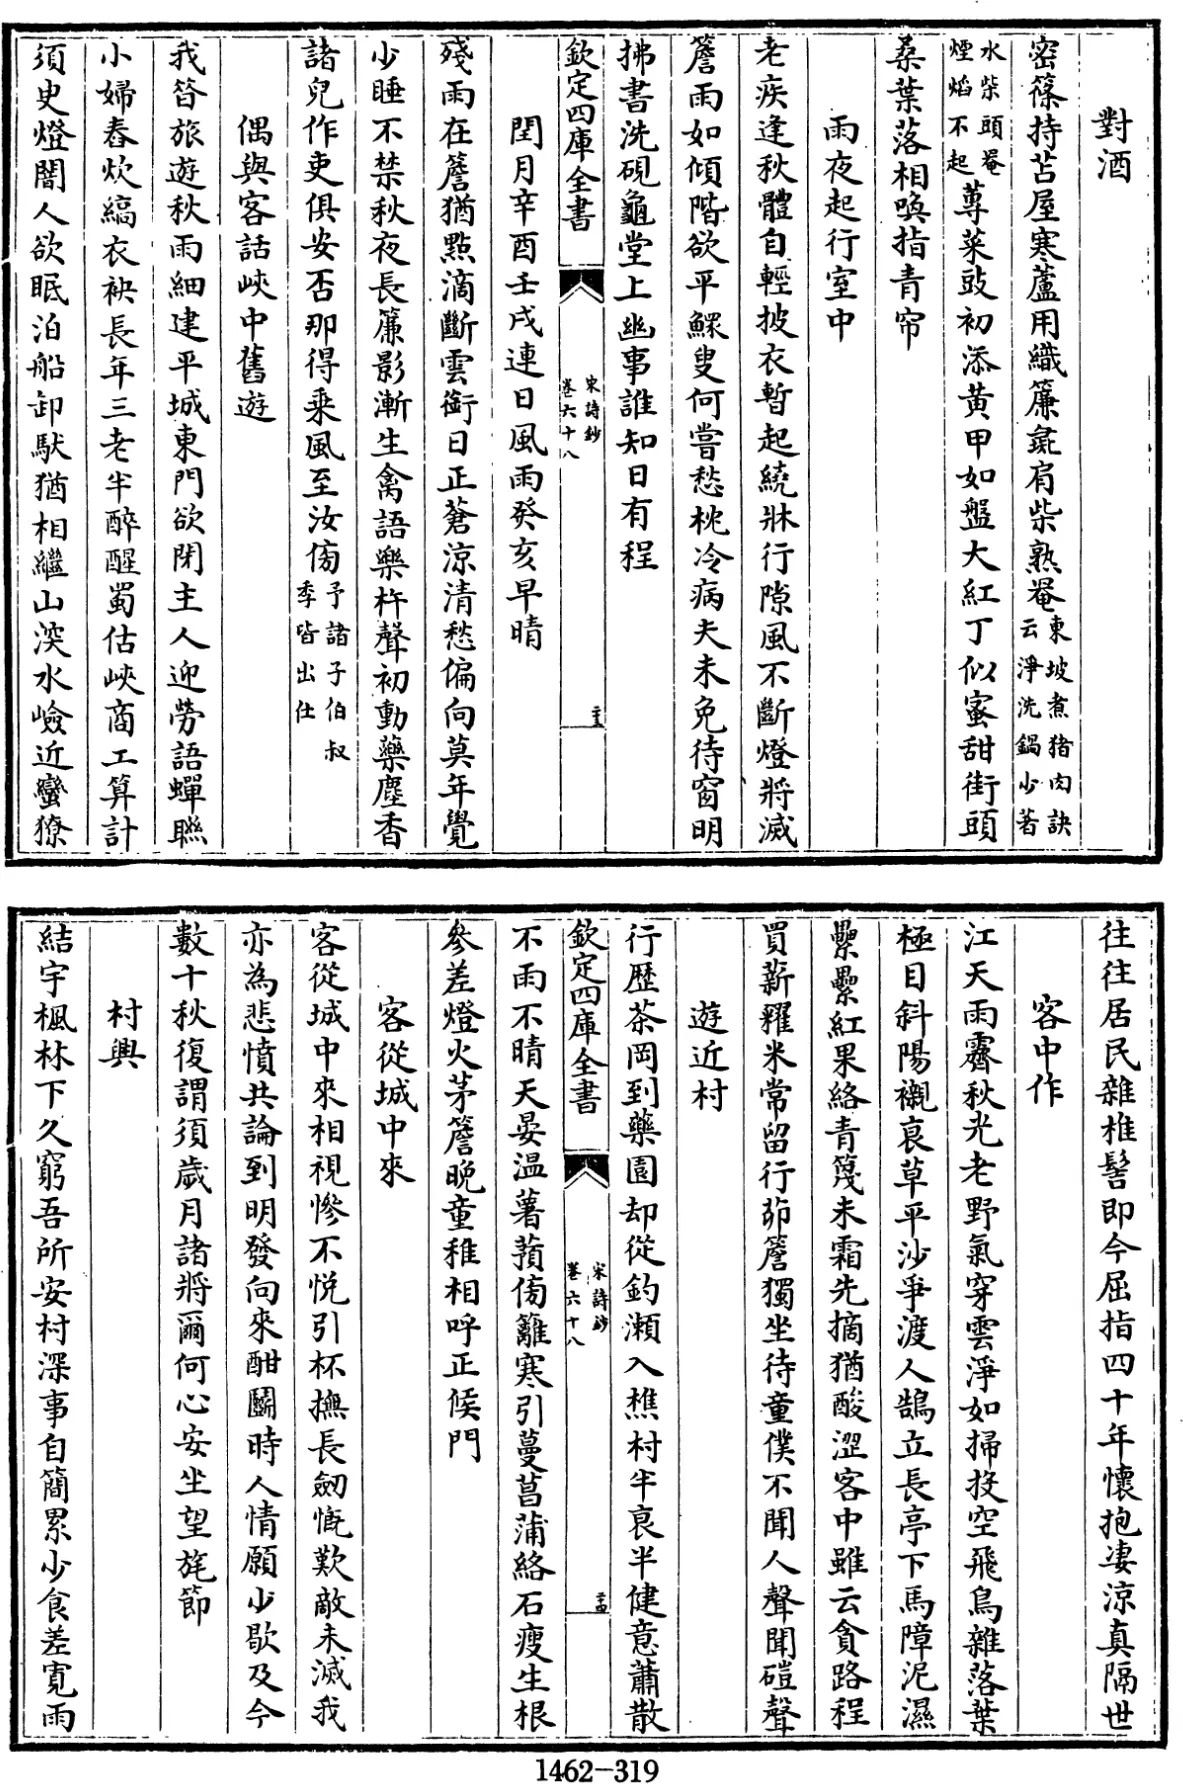 對酒
密篠持苫屋寒蘆用織簾彘肩柴熟罨東坡煮猪肉訣云淨洗鍋少著
水柴頭罨煙熖不起蓴菜豉初添黄甲如盤大紅丁似蜜甜街頭
桑葉落相喚指青帘
雨夜起行室中
老疾逢秋體自輕披衣暫起繞牀行隙風不斷燈將滅
簷雨如傾階欲平鰥叟何嘗愁枕冷病夫未免待窗明
拂書洗硯龜堂上幽事誰知日有程
欽定四庫全書
宋詩鈔
卷六十八
閏月辛酉壬戌連日風雨癸亥早晴
殘雨在簷猶點滴斷雲銜日正蒼涼清愁偏向莫年覺
少睡不禁秋夜長簾影漸生禽語樂杵聲初動藥塵香
諸兒作吏俱安否那得乘風至汝傍予諸子伯叔季皆出仕
偶與客話峽中舊遊
我昔旅遊秋雨細建平城東門欲閉主人迎勞語蟬聯
小婦舂炊縞衣袂長年三老半醉醒蜀估峽商工算計
須臾燈闇人欲眠泊船卸馱猶相繼山深水嶮近蠻獠
往往居民雜椎髻即今屈指四十年懷抱凄涼真隔世
客中作
江天雨霽秋光老野氣穿雲淨如掃投空飛鳥雜落葉
極目斜陽襯衰草平沙爭渡人鵠立長亭下馬障泥濕
纍纍紅果絡青篾未霜先摘猶酸澀客中雖云貪路程
買薪糴米常留行茆簷獨坐待童僕不聞人聲聞磑聲
遊近村
行歷茶岡到藥園却從釣瀨入樵村半衰半健意蕭散
欽定四庫全書
宋詩鈔
卷六十八
不雨不晴天晏温薯蕷傍籬寒引蔓菖蒲絡石瘦生根
參差燈火茅簷晩童稚相呼正候門
客從城中來
客從城中來相視慘不悦引杯撫長劒慨歎敵未滅我
亦為悲憤共論到明發向來酣鬭時人情願少歇及今
數十秋復謂須歲月諸將爾何心安坐望旄節
村興
結宇楓林下久窮吾所安村深事自簡累少食差寛雨
1462-319